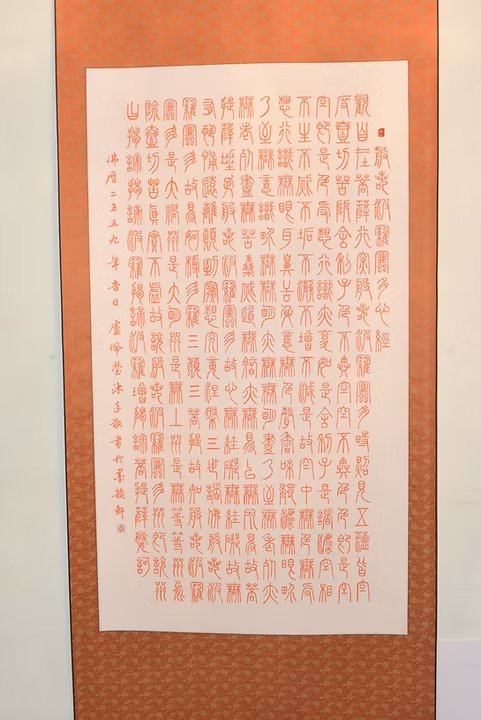 般若波羅蜜多心經
觀自在菩薩行深般若波羅蜜多時照見五蘊皆空
度壹切苦厄舍利子色不異空空不異色色即是空
空即是色受想行識亦復如是舍利子是諸法空相
不生不滅不垢不淨不增不減是故空中無色無受
想行識無眼耳鼻舌身意無色聲香味觸法無眼界
乃至無意識界無無明亦無無明盡乃至無老死亦
無老死盡無苦集滅道無智亦無得以無所得故菩
提薩埵依般若波羅蜜多故心無罣礙無罣礙故無
有恐怖遠離顛倒夢想究竟涅槃三世諸佛依般若波
羅蜜多故得阿耨多羅三藐三菩提故知般若波羅
蜜多是大神咒是大明咒是無上咒是無等等咒能
除壹切苦真實不虛故說般若波羅蜜多咒即說咒
曰揭諦揭諦波羅揭諦波羅僧揭諦菩提薩婆訶
佛曆二五五九年吉日盧佩瑩沐手敬書於墨韻軒